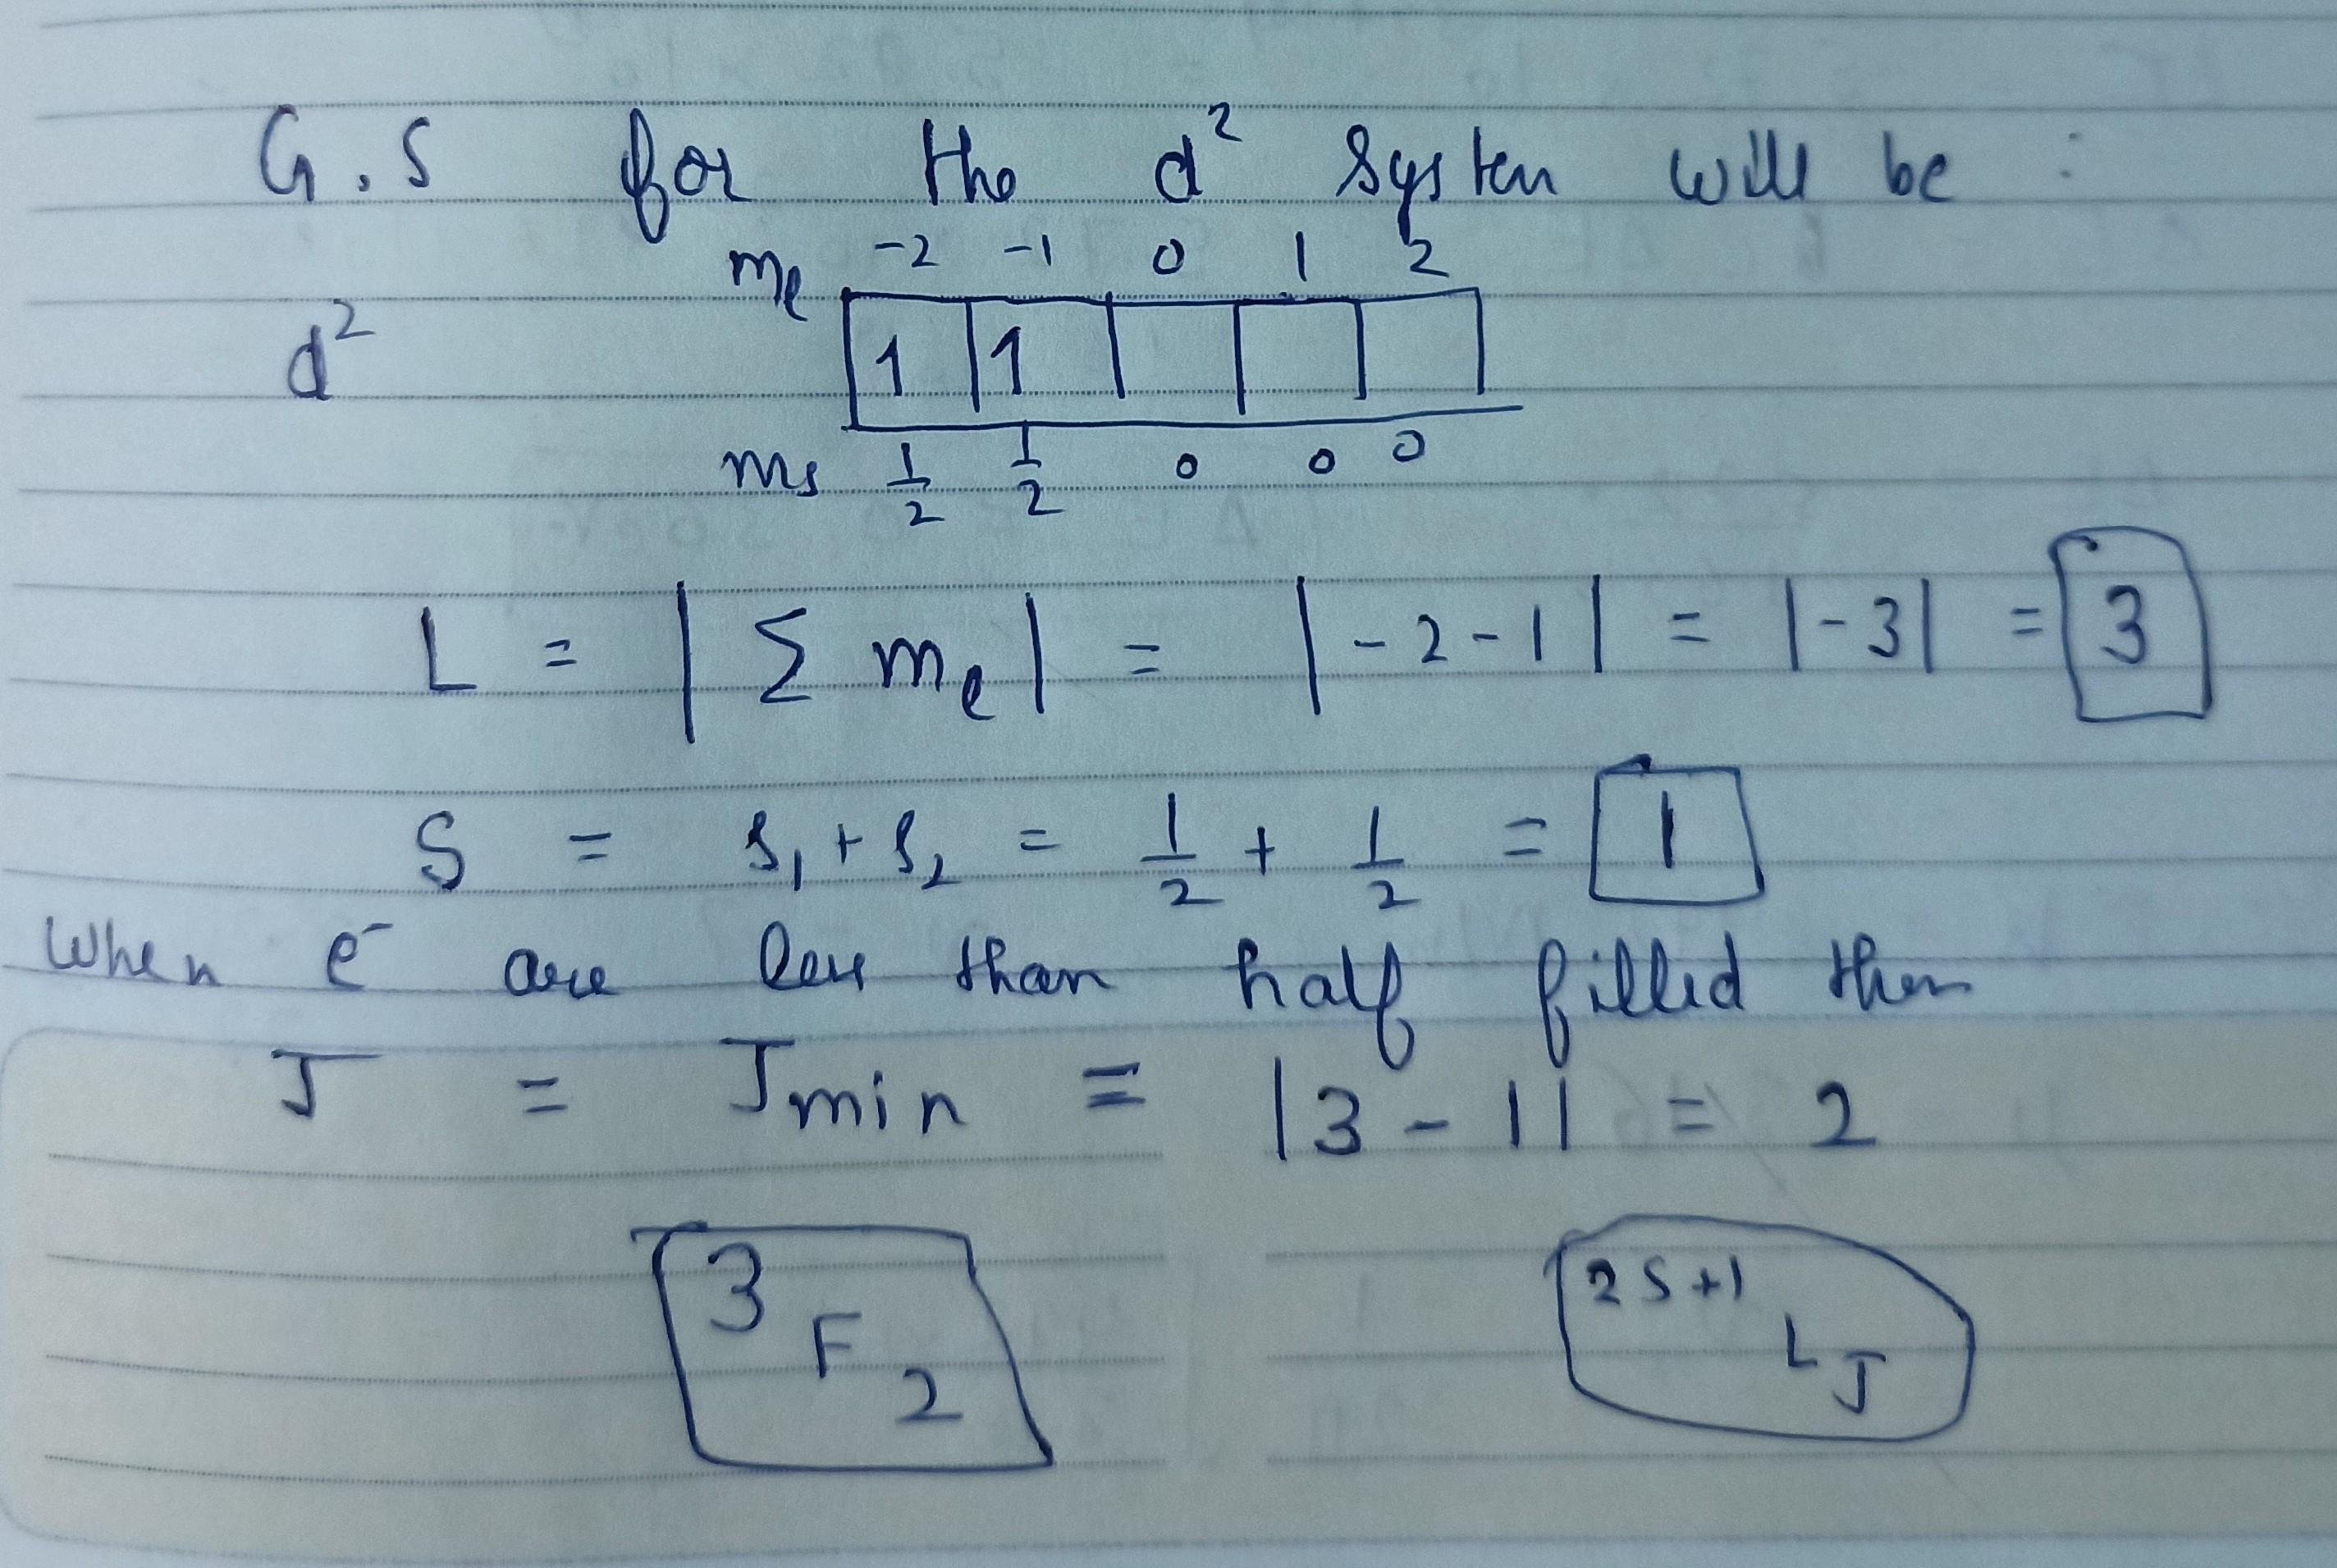 G.S for the d² system will be :
mₑ -2 -1 0 1 2
d² 1 1
ms 1/2 1/2 0 0 0
L = |Σ mₑ| = |-2-1| = |-3| = 3
S = s₁ + s₂ = 1/2 + 1/2 = 1
When e⁻ are less than half filled then
J = Jmin = |3-1| = 2
³F₂ ²ˢ⁺¹L_J